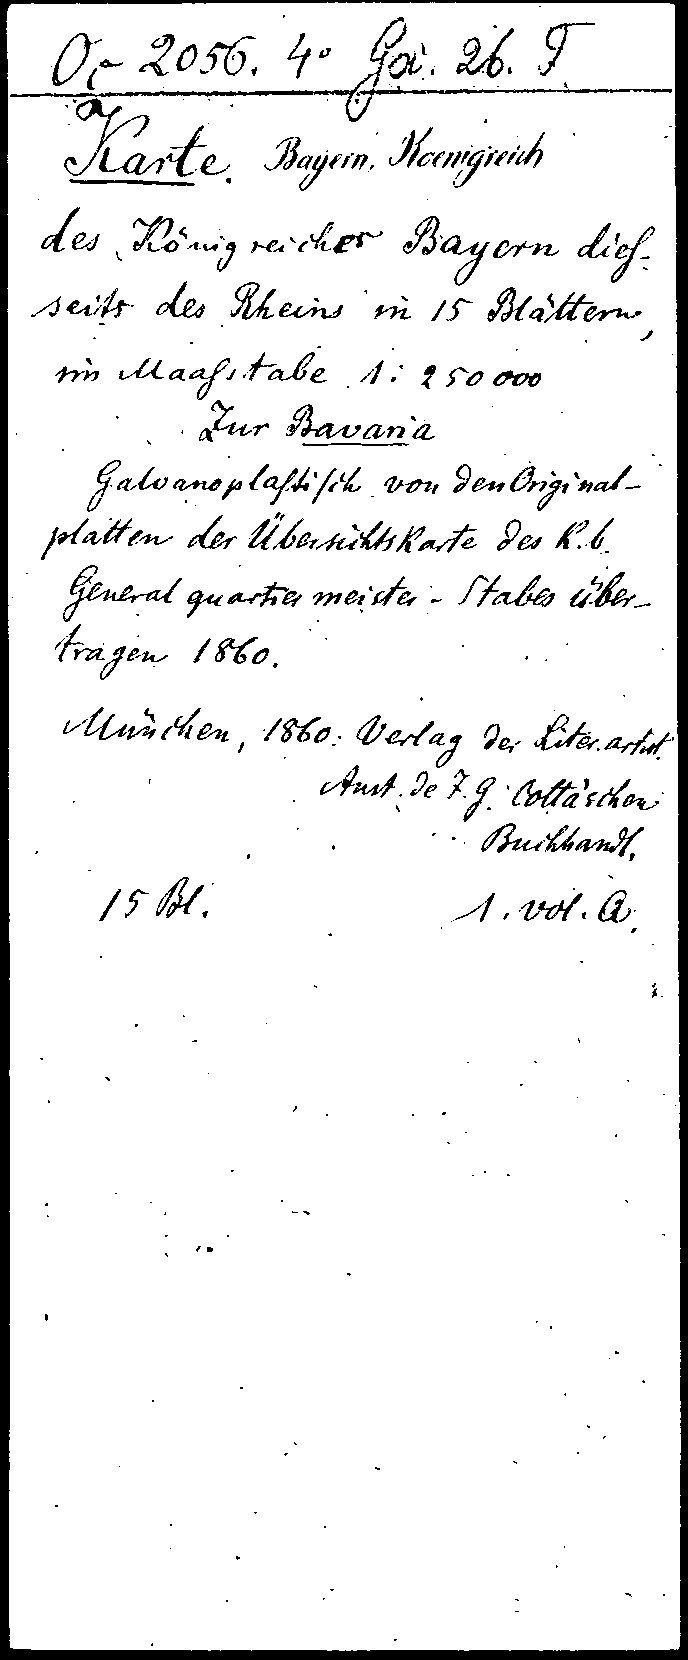 2056. 4° 26. F
Karte. Bayern, Koenigreich
des Königreiches Bayern dieſ-
seits des Rheins in 15 Blättern,
im Maaſstabe 1:250000
Zur Bavaria
Galvanoplaſtiſch von den Original-
platten der Übersichtskarte des K. b.
General quartiermeister-Stabes über-
tragen 1860.
München, 1860: Verlag der Liter. artist.
Anst. de J. G. Cotta'schen
Buchhandl.
15 Bl. 1. vol. A.